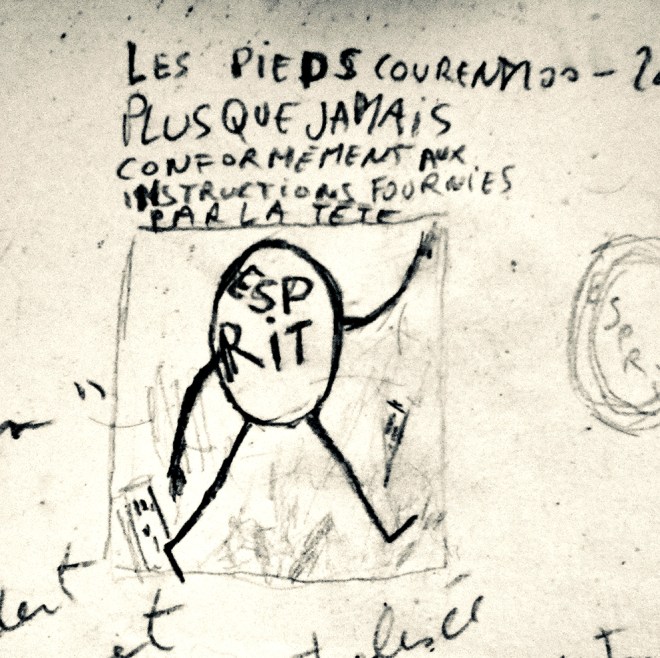 LES PiEDS COURENT
PLUS QUE JAMAiS
CONFORMÉMENT AUX
INSTRUCTIONS FOURNiES
PAR LA TÊTE
ESP
RiT
et